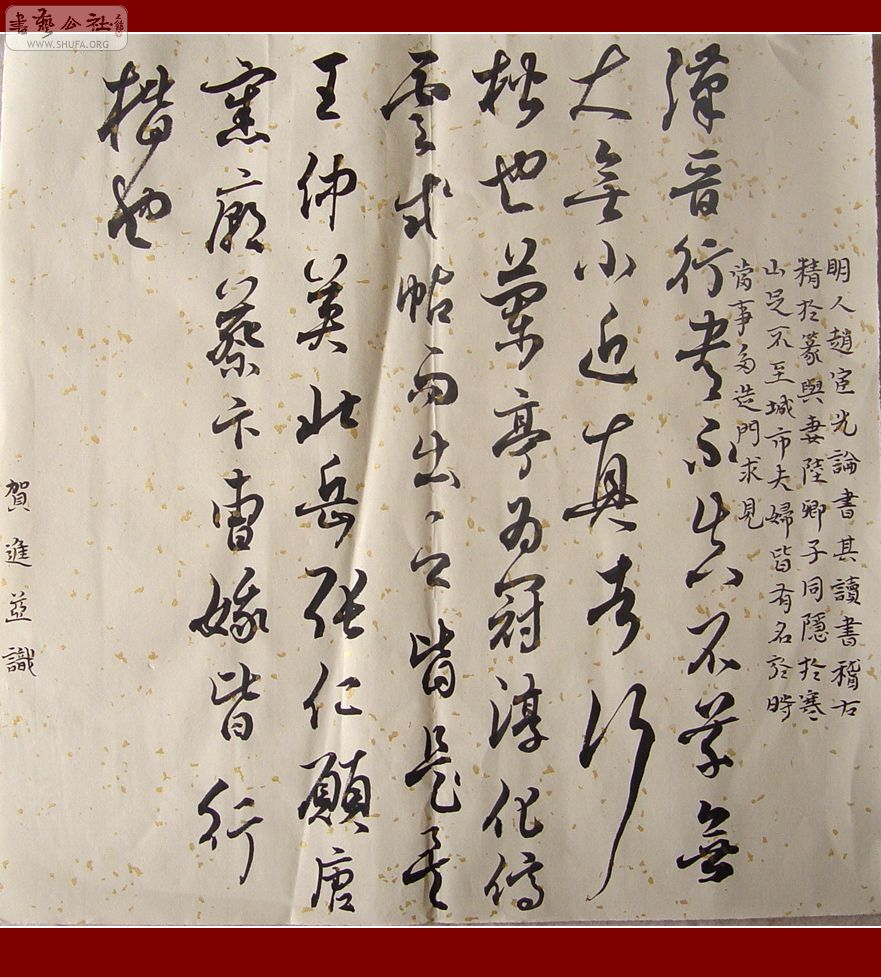 書藝公社
WWW.SHUFA.ORG
明人趙宧光論書其讀書稽古
精於篆與妻陸卿子同隱於寒
山足不至城市夫婦皆有名於時
當事多造門求見
漢晉行書不学無
大無小近真者行
楷也蘭亭为冠淳化停
雲帖而出皆是
王仲英北岳张仁愿唐
廟蔡卞曹娥皆行
楷也
賀進並識